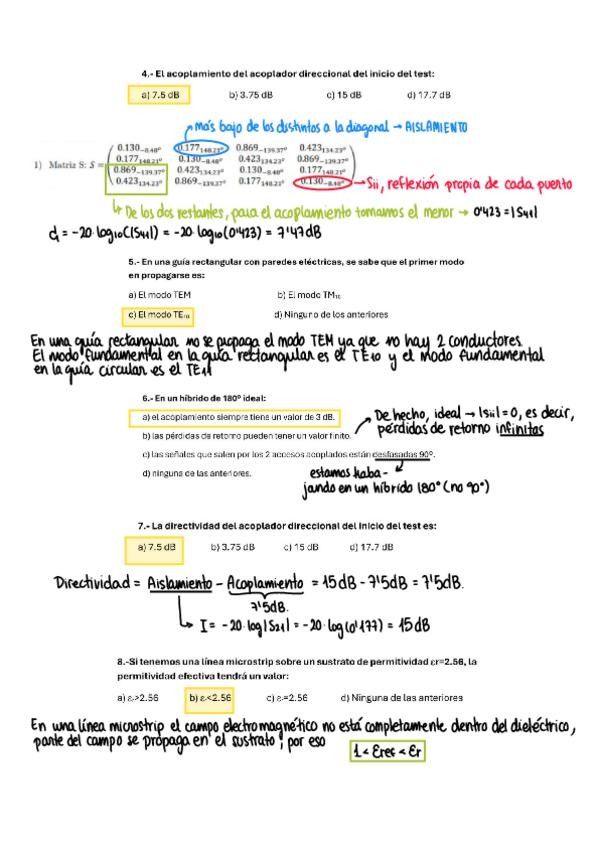 4.- El acoplamiento del acoplador direccional del inicio del test:
a) 7.5 dB b) 3.75 dB c) 15 dB d) 17.7 dB
más bajo de los distintos a la diagonal → AISLAMIENTO
1) Matriz S: S =
0.130-8.48º 0.177148.21º 0.869-139.37º 0.423134.23º
0.177148.21º 0.130-8.48º 0.423134.23º 0.869-139.37º
0.869-139.37º 0.423134.23º 0.130-8.48º 0.177148.21º
0.423134.23º 0.869-139.37º 0.177148.21º 0.130-8.48º
Sii, reflexión propia de cada puerto
De los dos restantes, para el acoplamiento tomamos el menor → 0'423 = |S41|
d = -20·log10(|S41|) = -20·log10(0'423) = 7'47dB
5.- En una guía rectangular con paredes eléctricas, se sabe que el primer modo
en propagarse es:
a) El modo TEM b) El modo TM10
c) El modo TE10 d) Ninguno de los anteriores
En una guía rectangular no se propaga el modo TEM ya que no hay 2 conductores.
El modo fundamental en la guía rectangular es el TE10 y el modo fundamental
en la guía circular es el TE11
6.- En un híbrido de 180º ideal:
a) el acoplamiento siempre tiene un valor de 3 dB.
b) las pérdidas de retorno pueden tener un valor finito.
De hecho, ideal → |Sii| = 0, es decir,
pérdidas de retorno infinitas
c) las señales que salen por los 2 accesos acoplados están desfasadas 90º.
d) ninguna de las anteriores.
estamos traba-
jando en un híbrido 180° (no 90°)
7.- La directividad del acoplador direccional del inicio del test es:
a) 7.5 dB b) 3.75 dB c) 15 dB d) 17.7 dB
Directividad = Aislamiento - Acoplamiento = 15dB - 7'5dB = 7'5dB.
7'5dB.
I = -20·log|S21| = -20·log(0'177) = 15dB
8.-Si tenemos una línea microstrip sobre un sustrato de permitividad εr=2.56, la
permitividad efectiva tendrá un valor:
a) εr>2.56 b) εr<2.56 c) εr=2.56 d) Ninguna de las anteriores
En una línea microstrip el campo electromagnético no está completamente dentro del dieléctrico,
parte del campo se propaga en el sustrato, por eso
1 < εref < εr